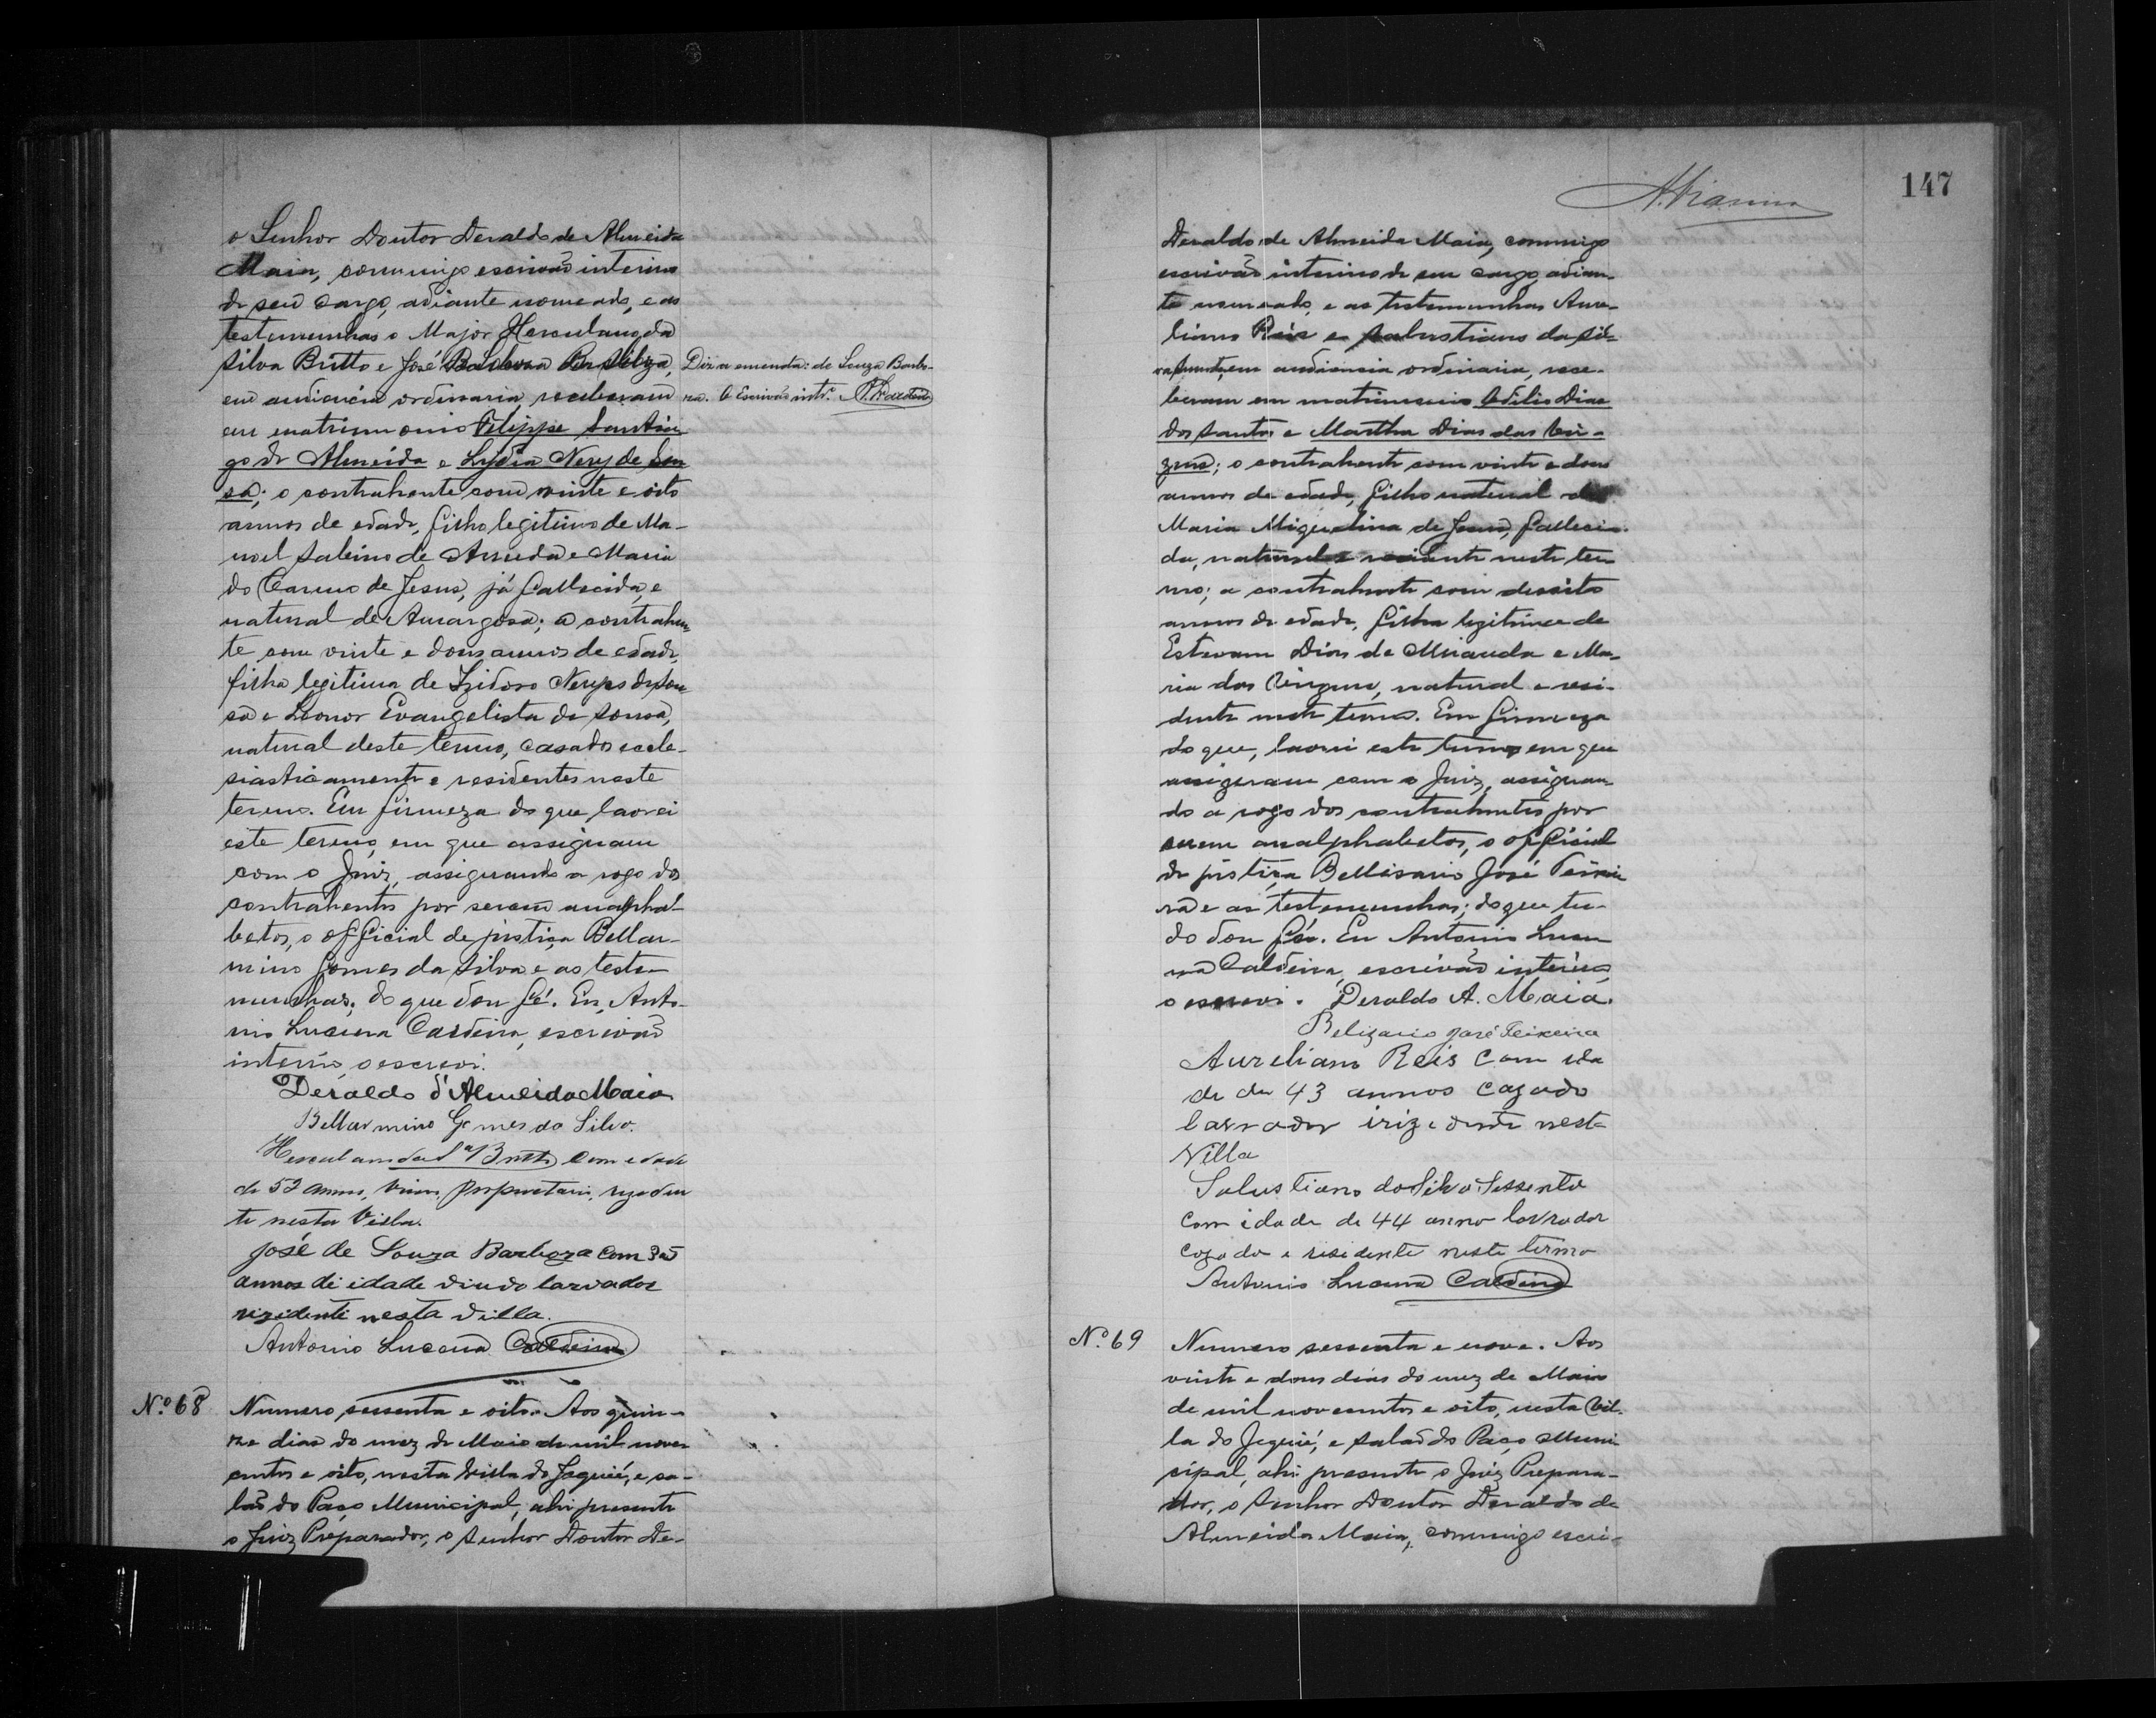 o Senhor Doutor Deraldo de Almeida
Maia, commigo escrivão interino
de seu cargo, adiante nomeado, e as
testemunhas o Major Herculano da
Silva Britto e José Barbosa
Diz a emenda: de Souza Barbo-
em audiencia ordinaria receberam
za. O Escrivão intr.º
em matrimonio Filippe Santia
go de Almeida e Lydia Nery de Sou
sa; o contrahente com vinte e oito
annos de edade, filho legitimo de Ma-
noel Sabino de Arruda e Maria
do Carmo de Jesus, já fallecida, e
natural de Amargosa; a contrahen
te com vinte e dous annos de edade,
filha legitima de Izidoro Nery de Sou
sa e Leonor Evangelista de Sousa,
natural deste termo, casados eccle-
siasticamente e residentes neste
termo. Em firmeza do que lavrei
este termo, em que assignam
com o Juiz, assignando a rogo dos
contrahentes por serem analpha-
betos, o official de justiça Bellar-
mino Gomes da Silva e as teste-
munhas; do que dou fé. Eu, Anto-
nio Lucena Caldeira, escrivão
interino, o escrevi.
Deraldo d'Almeida Maia
Bellarmino Gomes da Silva.
Herculano da S.ª Britto com edade
de 52 annos, viuvo, proprietario, rezeden
te nesta Villa.
José de Souza Barboza com
annos di idade viudo larvador
rizidenti nesta villa.
Antonio Lucena Caldeira
N.º 68
Numero sessenta e oito. Aos quin-
ze dias do mez de Maio de mil nove
centos e oito, nesta Villa do Jequié, e sa-
lão do Paço Municipal, ahi presente
o Juiz Preparador, o Senhor Doutor De-
147
Deraldo de Almeida Maia, commigo
escrivão interino de seu cargo, adian-
te nomeado, e as testemunhas Aure-
liano Reis e Salustiano da Sil-
em audiencia ordinaria, rece-
beram em matrimonio Odilio Dias
dos Santos e Martha Dias das Vir-
gens; o contrahente com vinte e dous
annos de edade, filho natural de
Maria Miguelina de Jesus, falleci-
da, natural e residente neste ter
mo; a contrahente com desoito
annos de edade, filha legitima de
Estevam Dias de Miranda e Ma-
ria das Virgens, natural e resi-
dente neste termo. Em firmeza
do que, lavrei este termo em que
assignam com o Juiz, assignan
do a rogo dos contrahentes por
serem analphabetos, o official
de justiça Bellisario José Teixei
ra e as testemunhas; do que tu-
do dou fé. Eu Antonio Luce
na Caldeira, escrivão interino,
o escrevi. Deraldo A. Maia.
Belizario José Teixeira
Aureliano Reis com ida
de de 43 annos cazado
larvador irizidente nesta
Villa
Salustiano da Silva Sessenta
com idade de 44 anno lavrador
cazado e risidente neste termo
Antonio Lucena Caldeira
N.º 69
Numero sessenta e nove. Aos
vinte e dous dias do mez de Maio
de mil novecentos e oito, nesta Vil-
la do Jequié, e salão do Paço Muni
cipal, ahi presente o Juiz Prepara-
dor, o Senhor Doutor Deraldo de
Almeida Maia, commigo escri-